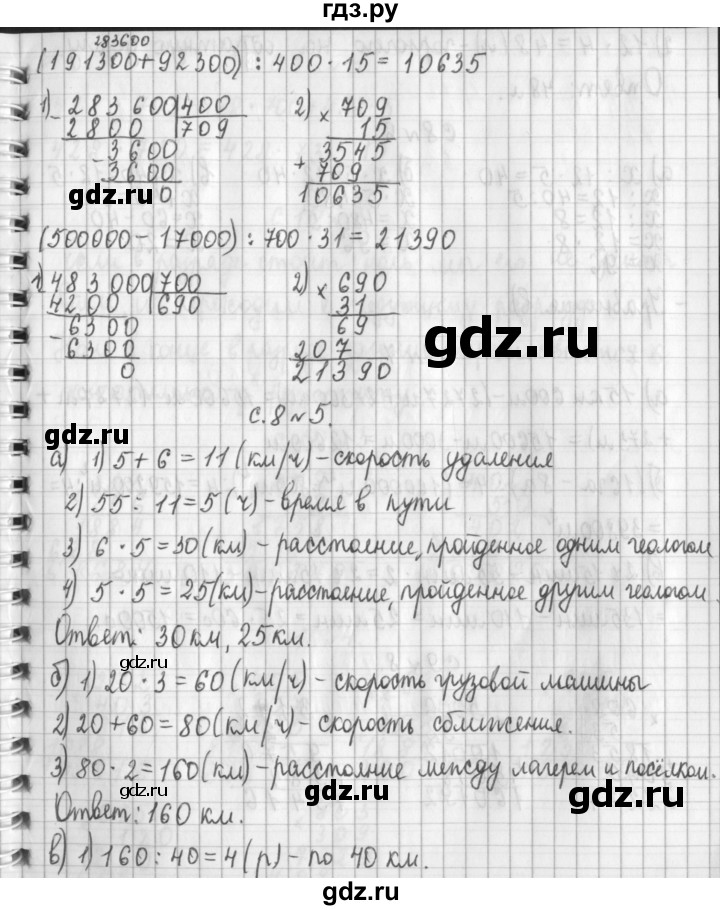 гдз.ру
283600
(191300+92300) : 400 · 15 = 10635
1) 283600 | 400
2800 | 709
- 3600
3600
0
2) × 709
15
3545
+ 709
10635
gdz.ru
(500000 - 17000) : 700 · 31 = 21390
1) 483000 | 700
4200 | 690
- 6300
6300
0
2) × 690
31
69
207
21390
gdz.ru
gdz.ru
с. 8 №5.
а) 1) 5 + 6 = 11 (км/ч) - скорость удаления
2) 55 : 11 = 5 (ч) - время в пути
3) 6 · 5 = 30 (км) - расстояние, пройденное одним геологом
4) 5 · 5 = 25 (км) - расстояние, пройденное другим геологом.
Ответ: 30 км, 25 км.
gdz.ru
б) 1) 20 · 3 = 60 (км/ч) - скорость грузовой машины
2) 20 + 60 = 80 (км/ч) - скорость сближения.
3) 80 · 2 = 160 (км) - расстояние между лагерем и посёлком.
Ответ: 160 км.
gdz.ru
gdz.ru
gdz.ru
в) 1) 160 : 40 = 4 (р) - по 40 км.
gdz.ru